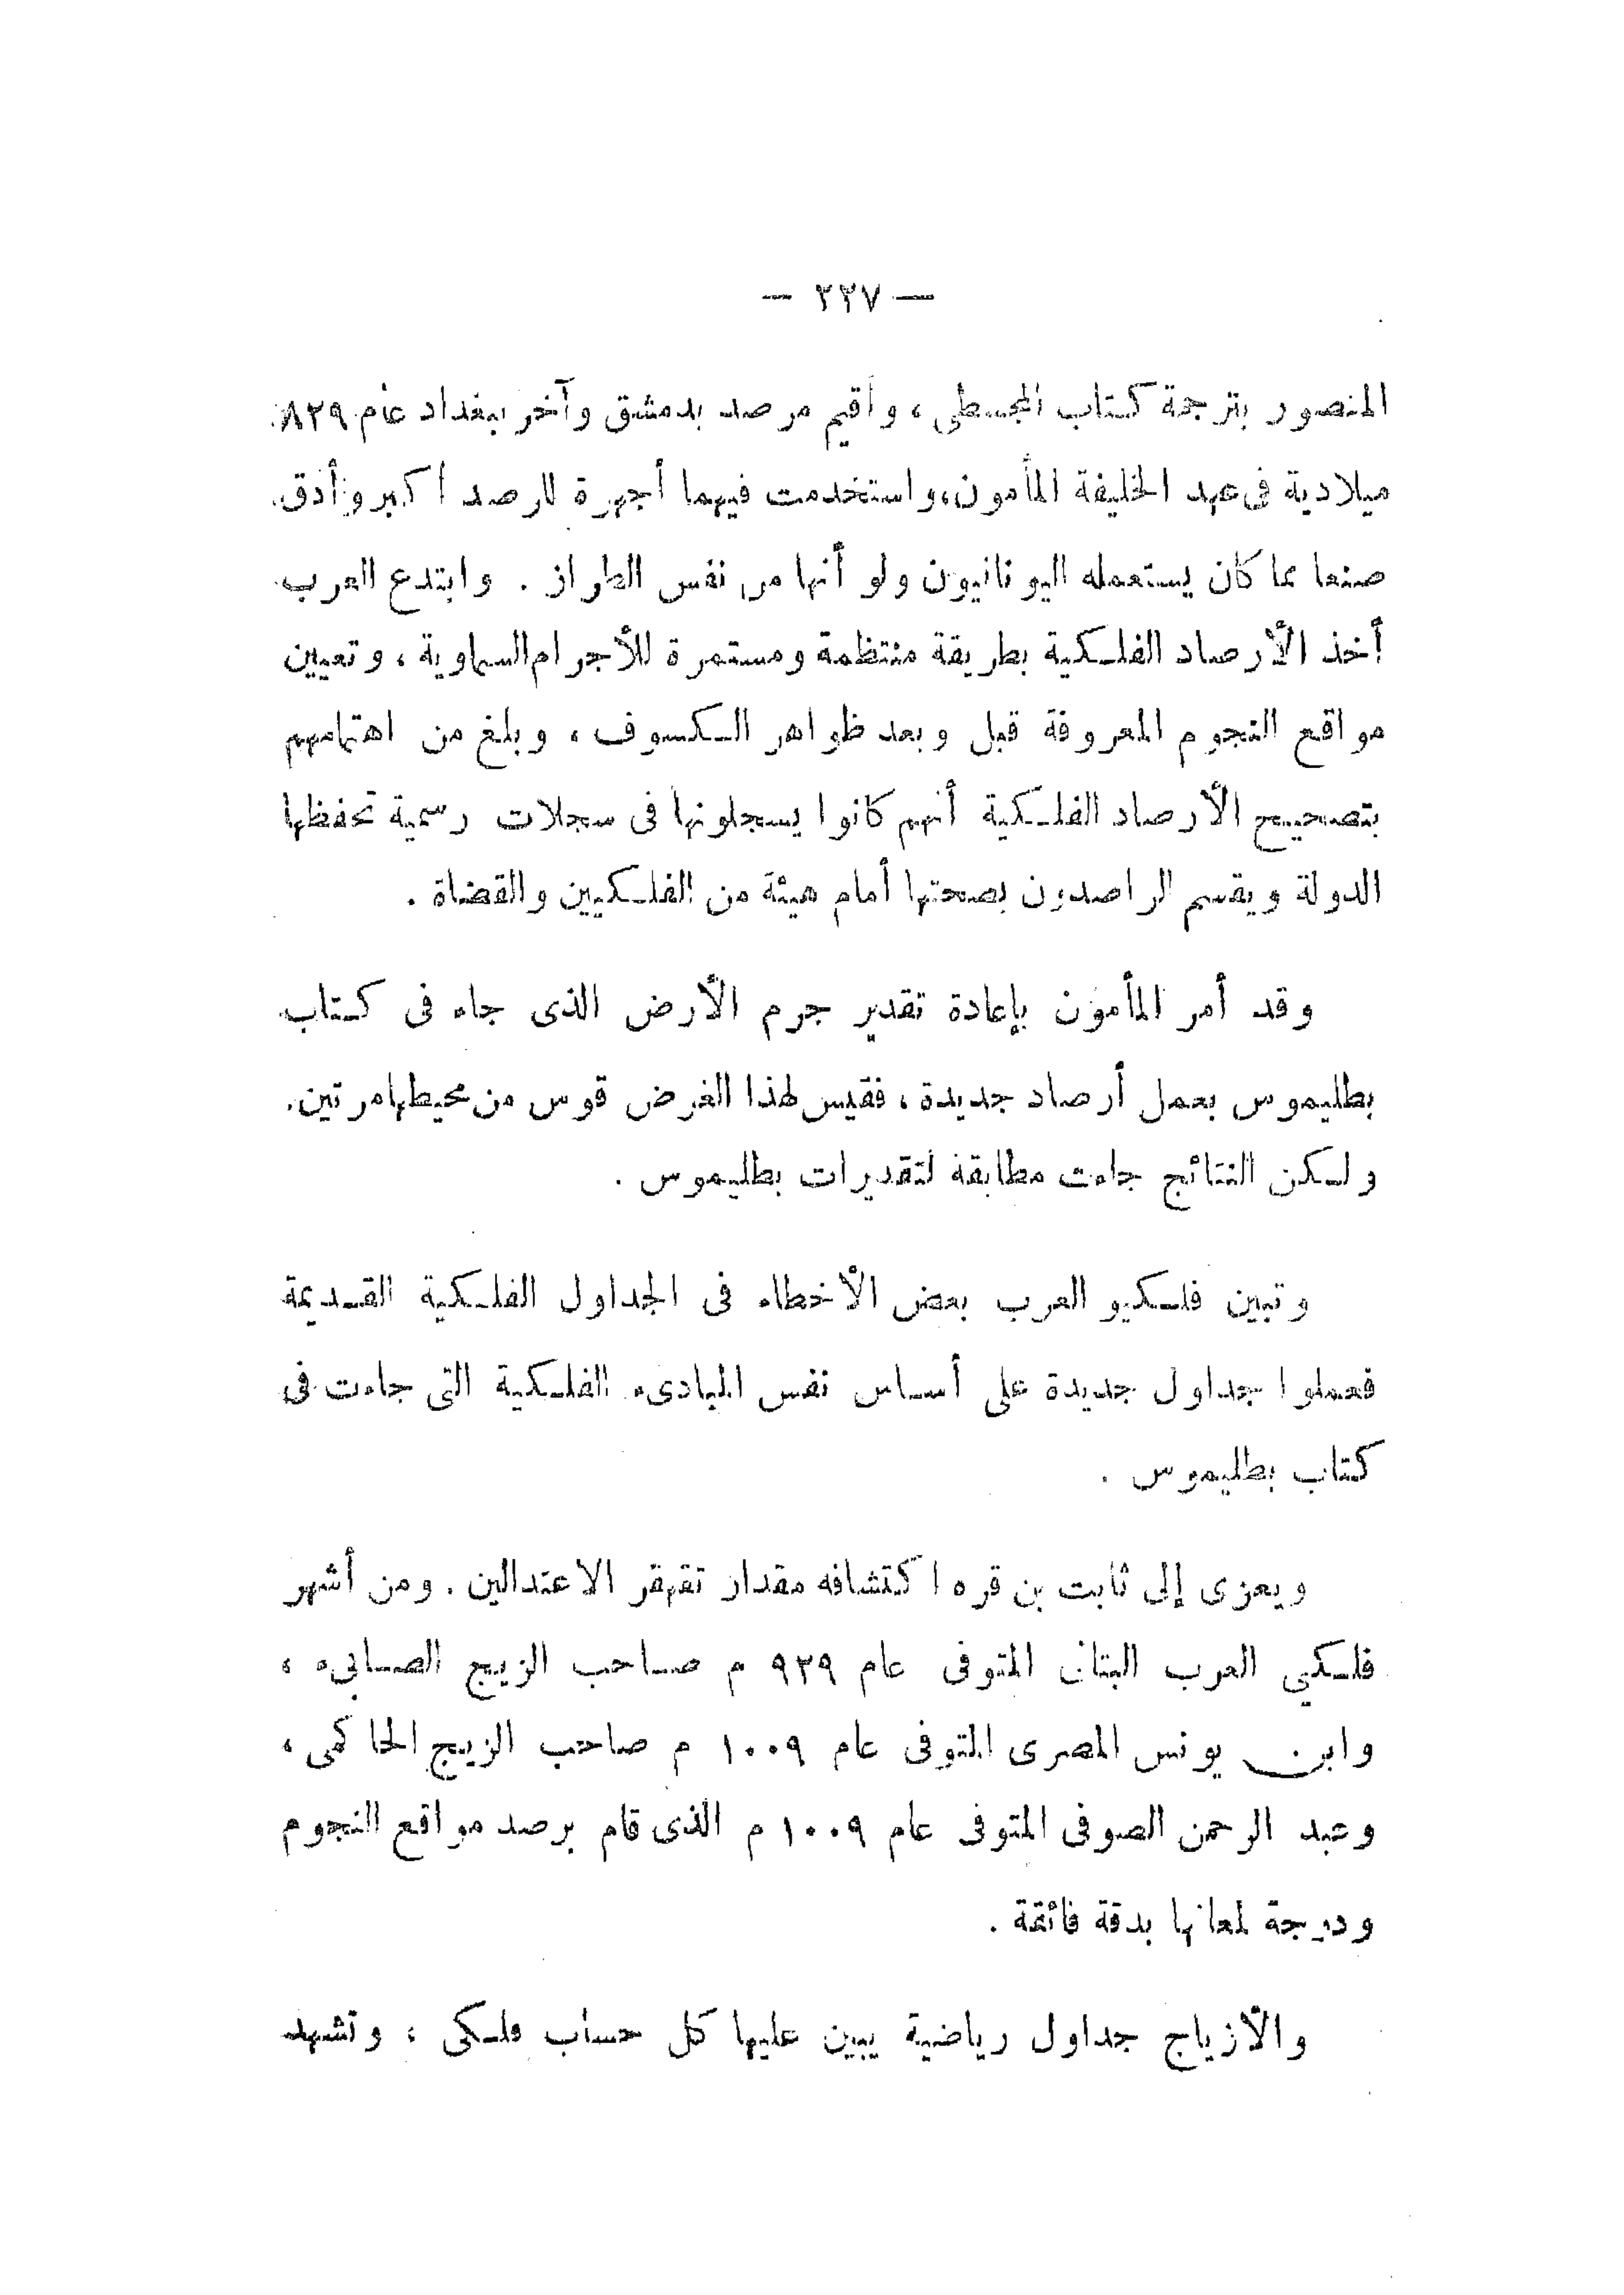 — ٢٢٧ —
المنصور بترجمة كتاب المجسطى ، وأقيم مرصد بدمشق وآخر ببغداد عام ٨٢٩
ميلادية فى عهد الخليفة المأمون، واستخدمت فيهما أجهزة للرصد أكبر وأدق
صنعا مما كان يستعمله اليونانيون ولو أنها من نفس الطراز . وابتدع العرب
أخذ الأرصاد الفلكية بطريقة منتظمة ومستمرة للأجرام السماوية ، وتعيين
مواقع النجوم المعروفة قبل وبعد ظواهر الكسوف ، وبلغ من اهتمامهم
بتصحيح الأرصاد الفلكية أنهم كانوا يسجلونها فى سجلات رسمية تحفظها
الدولة ويقسم الراصدون بصحتها أمام هيئة من الفلكيين والقضاة .
وقد أمر المأمون بإعادة تقدير جرم الأرض الذى جاء فى كتاب
بطليموس بعمل أرصاد جديدة ، فقيس لهذا الغرض قوس من محيطها مرتين.
ولكن النتائج جاءت مطابقة لتقديرات بطليموس .
وتبين فلكيو العرب بعض الأخطاء فى الجداول الفلكية القديمة
فعملوا جداول جديدة على أساس نفس المبادىء الفلكية التى جاءت فى
كتاب بطليموس .
ويعزى إلى ثابت بن قره اكتشافه مقدار تقهقر الاعتدالين . ومن أشهر
فلكيى العرب البتانى المتوفى عام ٩٢٩ م صاحب الزيج الصابىء ،
وابن يونس المصرى المتوفى عام ١٠٠٩ م صاحب الزيج الحاكمى ،
وعبد الرحمن الصوفى المتوفى عام ١٠٠٩ م الذى قام برصد مواقع النجوم
ودرجة لمعانها بدقة فائقة .
والأزياج جداول رياضية يبين عليها كل حساب فلكى ، وتشهد